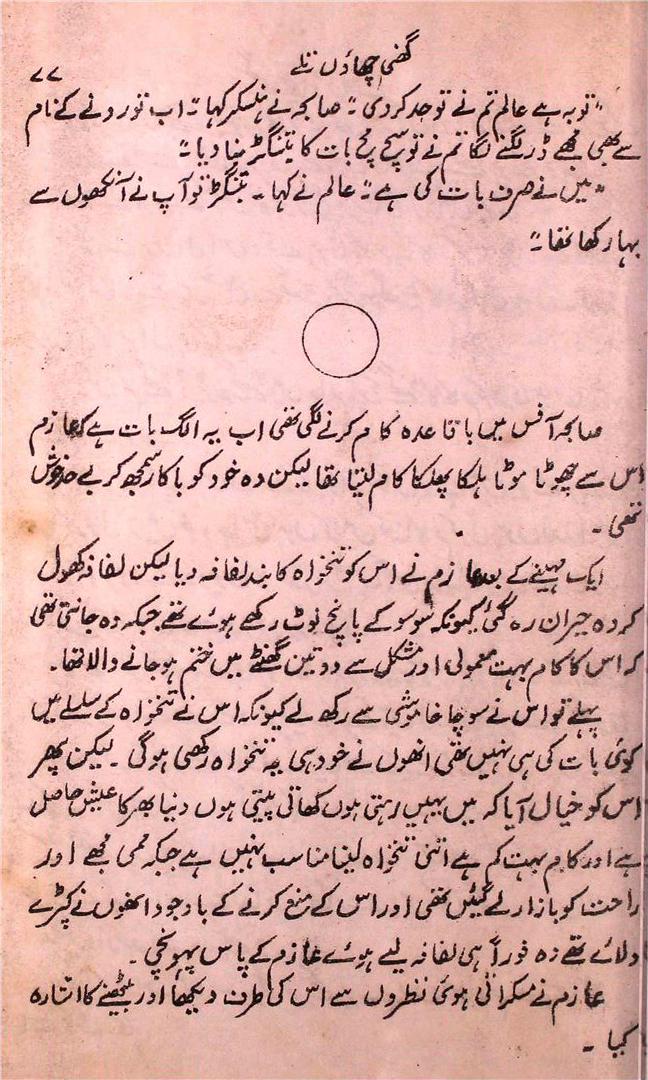 گھنی چھاؤں تلے
۷۷
"توبہ ہے عالم تم نے تو حد کر دی"۔ صابحہ نے ہنسکر کہا "اب تو رونے کے نام
سے بھی مجھے ڈر لگنے لگا تم نے تو سچ مچ بات کا بتنگڑ بنا دیا"
"میں نے صرف بات کی ہے" عالم نے کہا۔ بتنگڑ تو آپ نے آنکھوں سے
بہا رکھا تھا"
صابحہ آفس میں باقاعدہ کام کرنے لگی تھی اب یہ الگ بات ہے کہ عازم
اس سے چھوٹا موٹا ہلکا پھلکا کام لیتا تھا لیکن وہ خود کو باکار سمجھ کر بے حد خوش
تھی۔
ایک مہینے کے بعد عازم نے اس کو تنخواہ کا بند لفافہ دیا لیکن لفافہ کھول
کر وہ حیران رہ گئی کیونکہ سو سو کے پانچ نوٹ رکھے ہوئے تھے جبکہ وہ جانتی تھی
کہ اس کا کام بہت معمولی اور مشکل سے دو تین گھنٹے میں ختم ہو جانے والا تھا۔
پہلے تو اس نے سوچا خاموشی سے رکھ لے کیونکہ اس نے تنخواہ کے سلسلے میں
کوئی بات کی ہی نہیں تھی انھوں نے خود ہی یہ تنخواہ رکھی ہوگی۔ لیکن پھر
اس کو خیال آیا کہ میں یہیں رہتی ہوں کھاتی پیتی ہوں دنیا بھر کا عیش حاصل
ہے اور کام بہت کم ہے اتنی تنخواہ لینا مناسب نہیں ہے جبکہ ممی مجھے اور
راحت کو بازار لے گئیں تھی اور اس کے منع کرنے کے باوجود انھوں نے کپڑے
دلائے تھے وہ فوراً ہی لفافہ لیے ہوئے عازم کے پاس پہونچی۔
عازم نے مسکراتی ہوئی نظروں سے اس کی طرف دیکھا اور بیٹھنے کا اشارہ
کیا۔